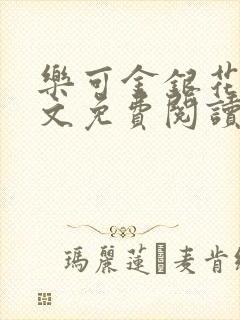 樂可金銀花
文免費閱讀
瑪麗蓮麦肯